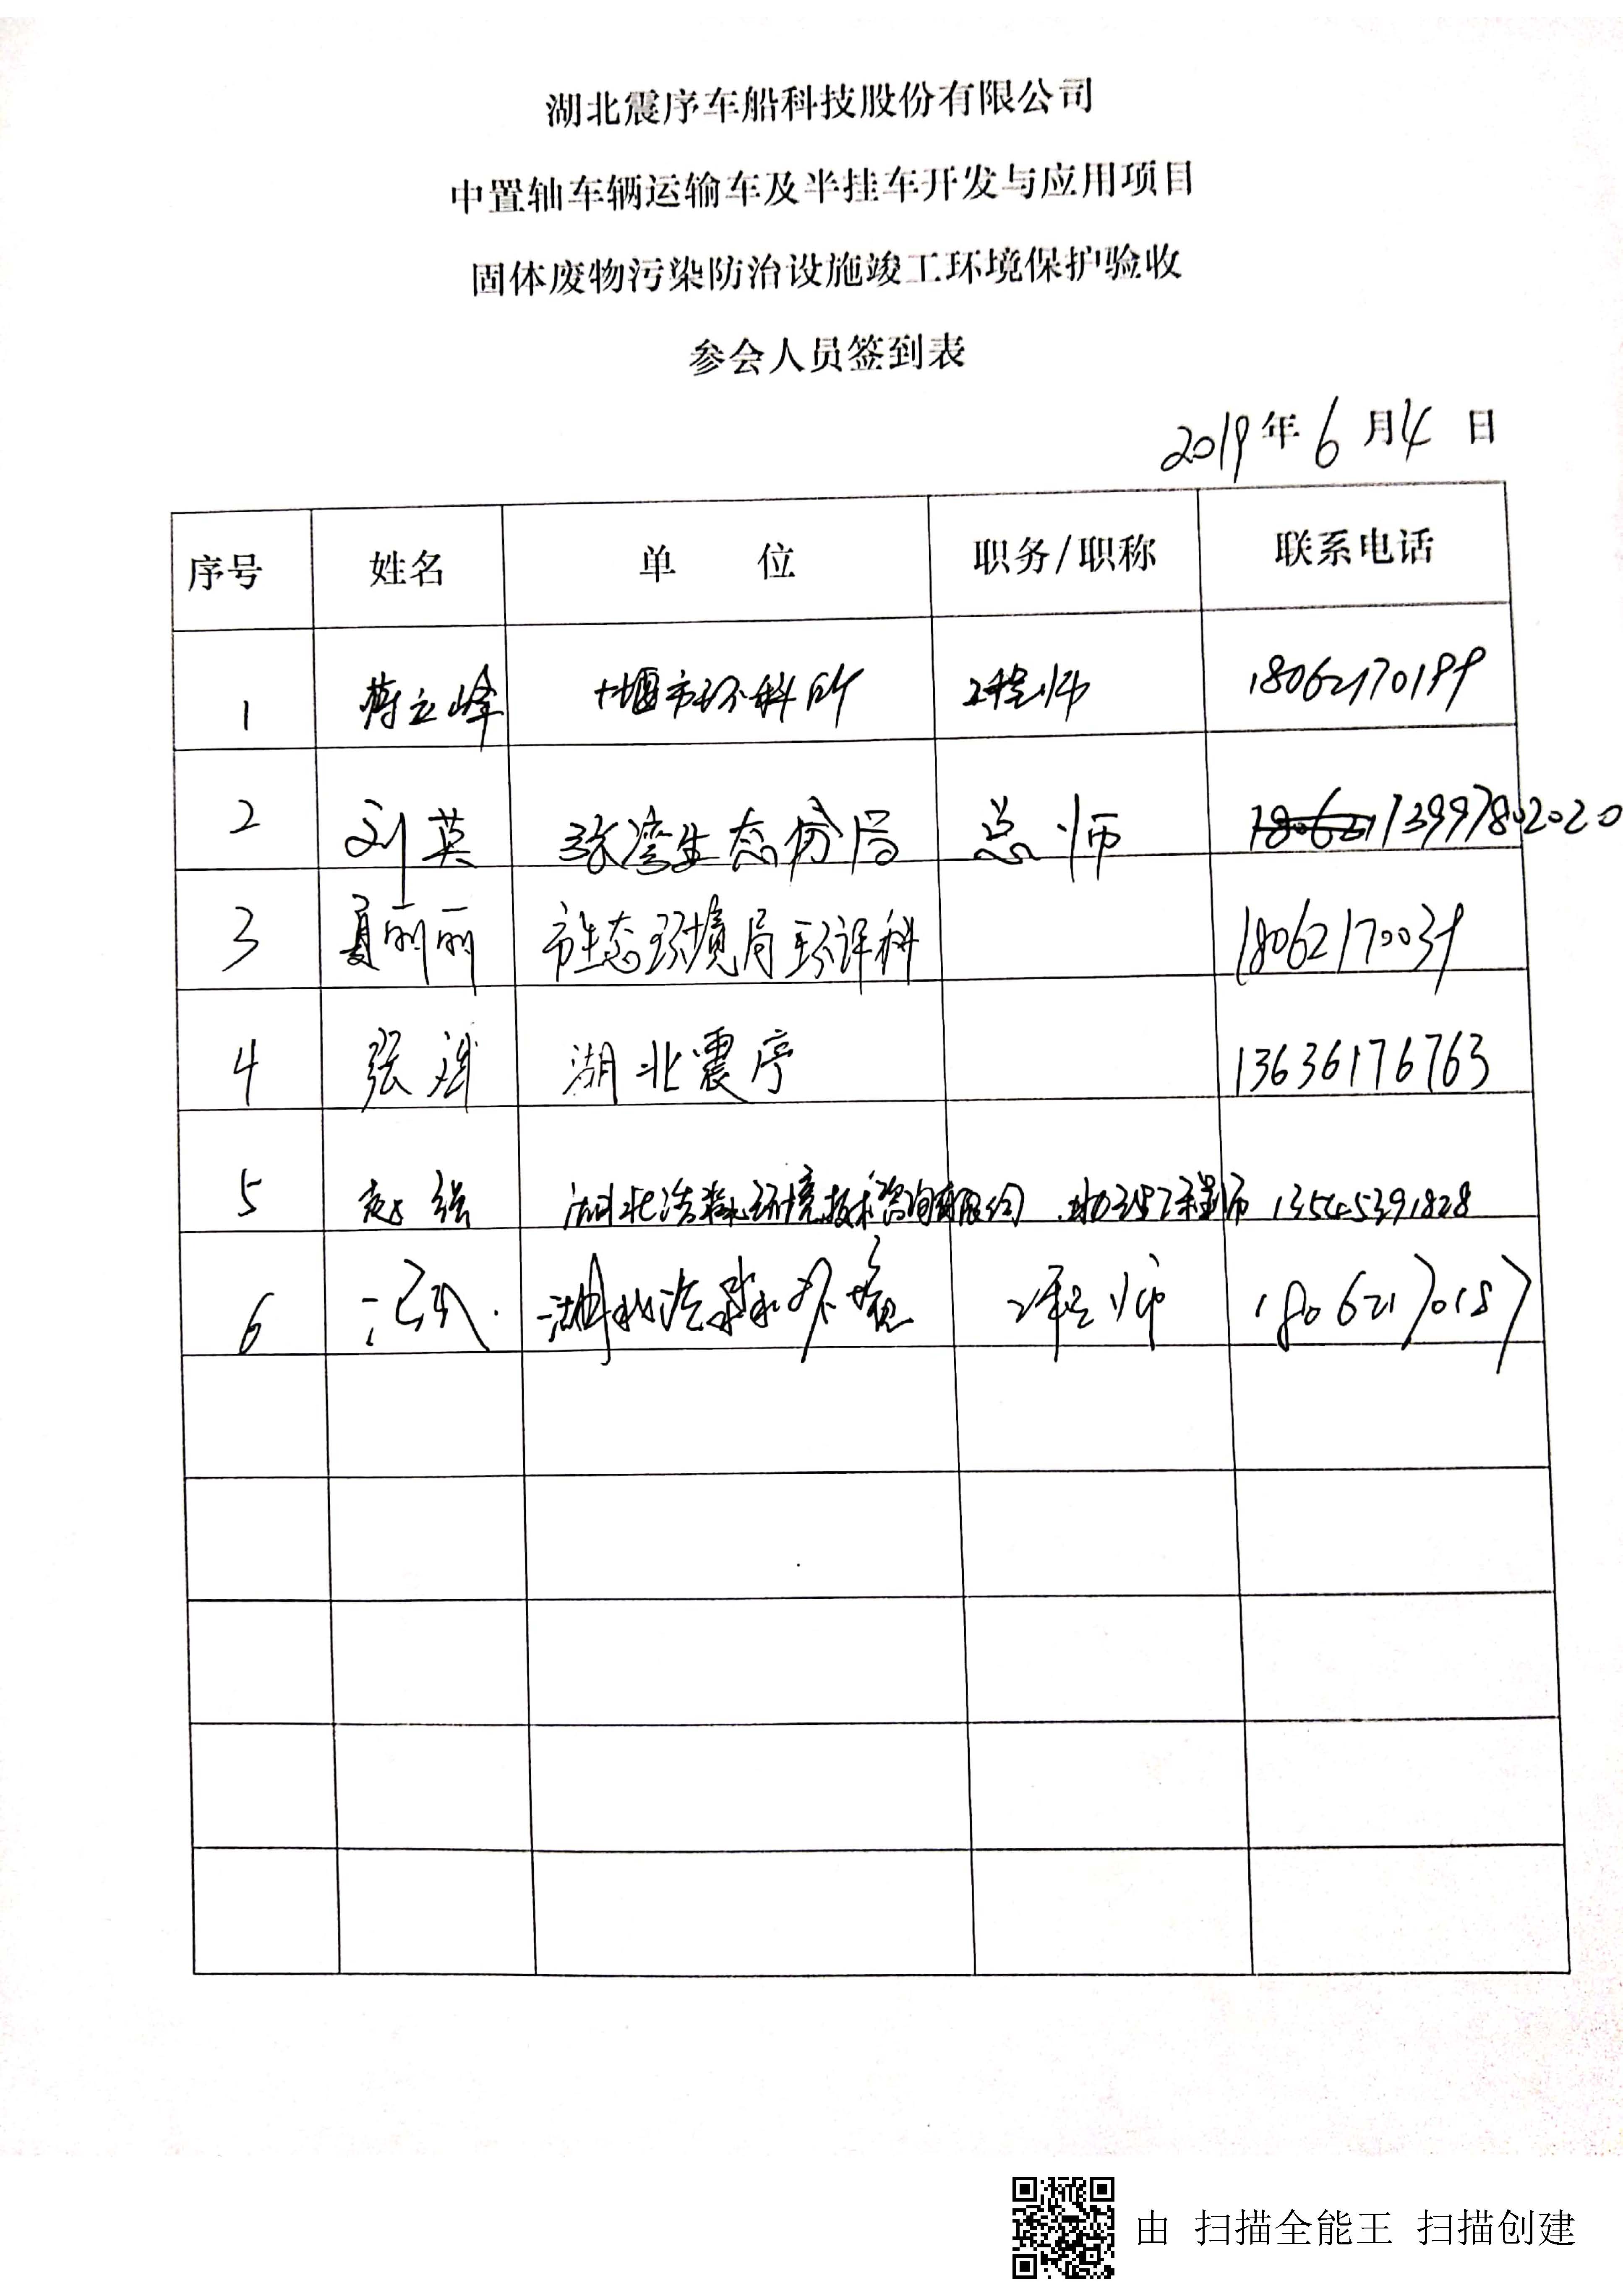 湖北震序车船科技股份有限公司
中置轴车辆运输车及半挂车开发与应用项目
固体废物污染防治设施竣工环境保护验收
参会人员签到表
2019年6月4日
序号 姓名 单 位 职务/职称 联系电话
1 蒋立峰 十堰市环科所 工程师 18062170199
2 刘英 张湾生态分局 总师 13997802020
3 夏丽丽 市生态环境局环评科 18062170039
4 张 湖北震序 13636176763
5 赵强 湖北浩淼环境技术咨询有限公司 助理工程师 13545391828
6 汪 湖北浩淼环境 工程师 18062170157
由 扫描全能王 扫描创建